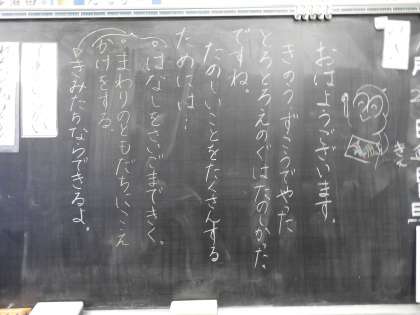 おはようございます。
きのうずこうでやった
とろとろえのぐはたのしかった
ですね。
たのしいことをたくさんする
ためには…
○はなしをさいごまできく。
○まわりのともだちにこえ
かけをする。
○きみたちならできるよ。
きえ
月
日